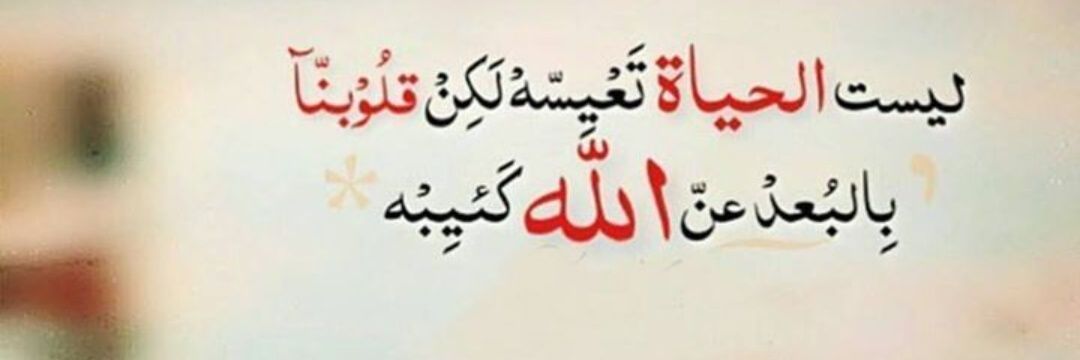 ليست الحياة تَعْيِسّهْ لَكِنْ قلُوْبنّآ
, بِالبُعدْ عنّ اللّه كَئيِبْه *